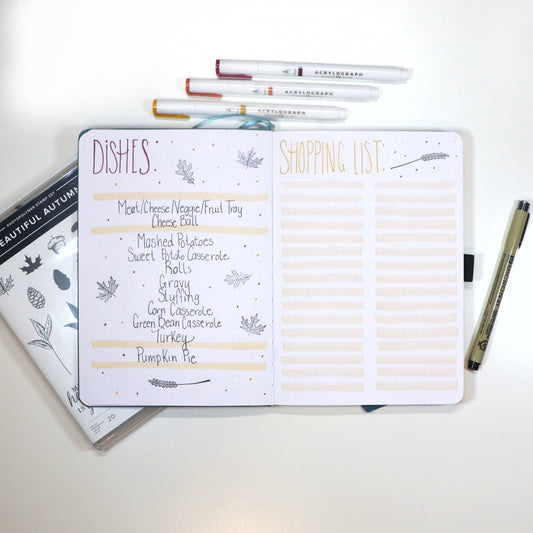 ACRYLOGRAPH
ACRYLOGRAPH
ACRYLOGRAPH
PHOTOPOLYMER STAMP SET
BEAUTIFUL AUTUMN
20
DISHES:
Meat/Cheese/Veggie/Fruit Tray
Cheese Ball
Mashed Potatoes
Sweet Potato Casserole
Rolls
Gravy
Stuffing
Corn Casserole
Green Bean Casserole
Turkey
Pumpkin Pie
SHOPPING LIST: